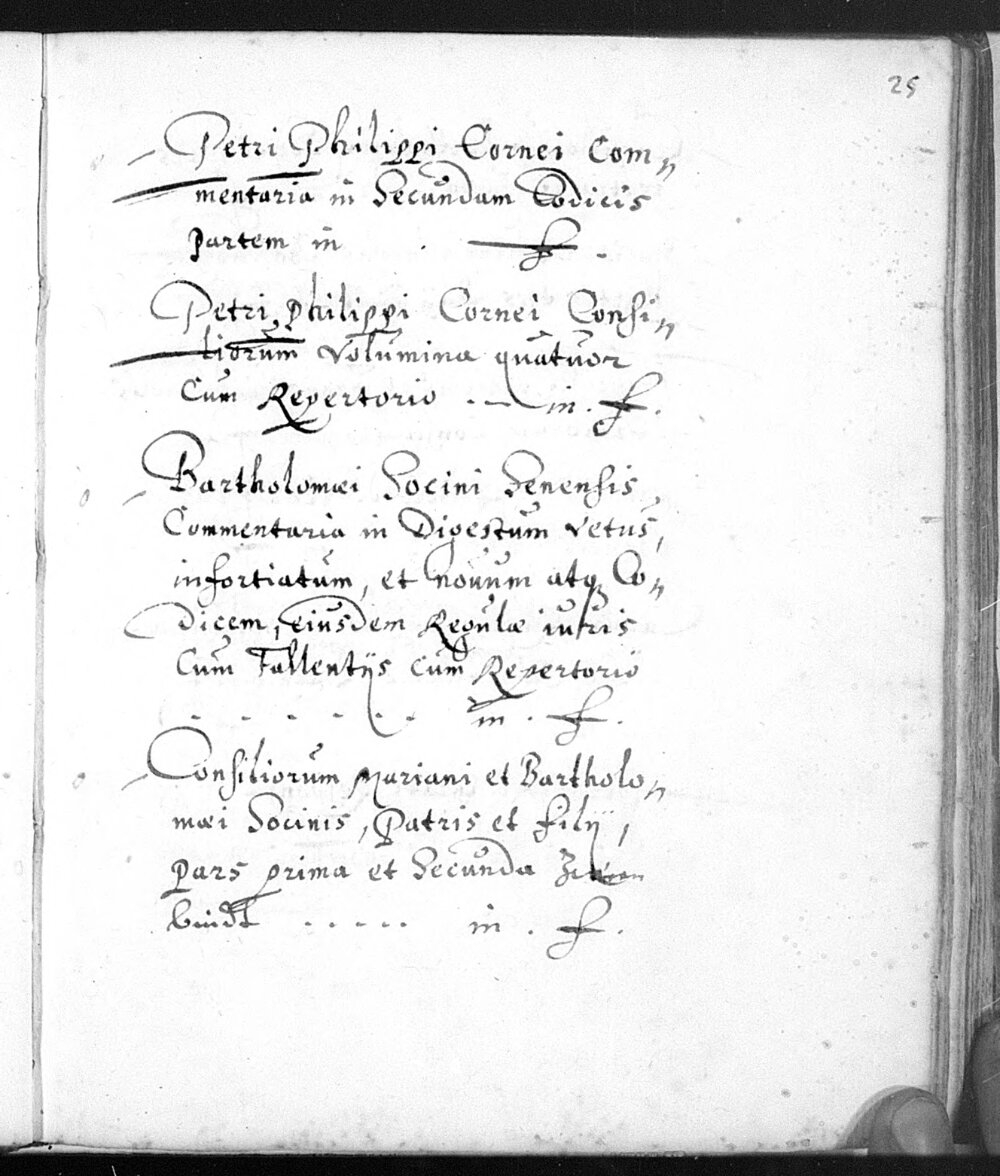 25
Petri Philippi Cornei Com„
mentaria in Secundam Codicis
partem in f.
Petri Philippi Cornei Consi„
liorum Volumina quatuor
Cum Repertorio . — in . f.
Bartholomæi Socini Senensis
Commentaria in Digestum Vetus,
infortiatum, et novum atq Co„
dicem, eiusdem Regulæ iuris
Cum Fallentijs Cum Repertorio
. . . . . . in . f.
Consiliorum Mariani et Bartholo„
mæi Socinis, Patris et filij,
pars prima et Secunda
bundt . . . . . in . f.